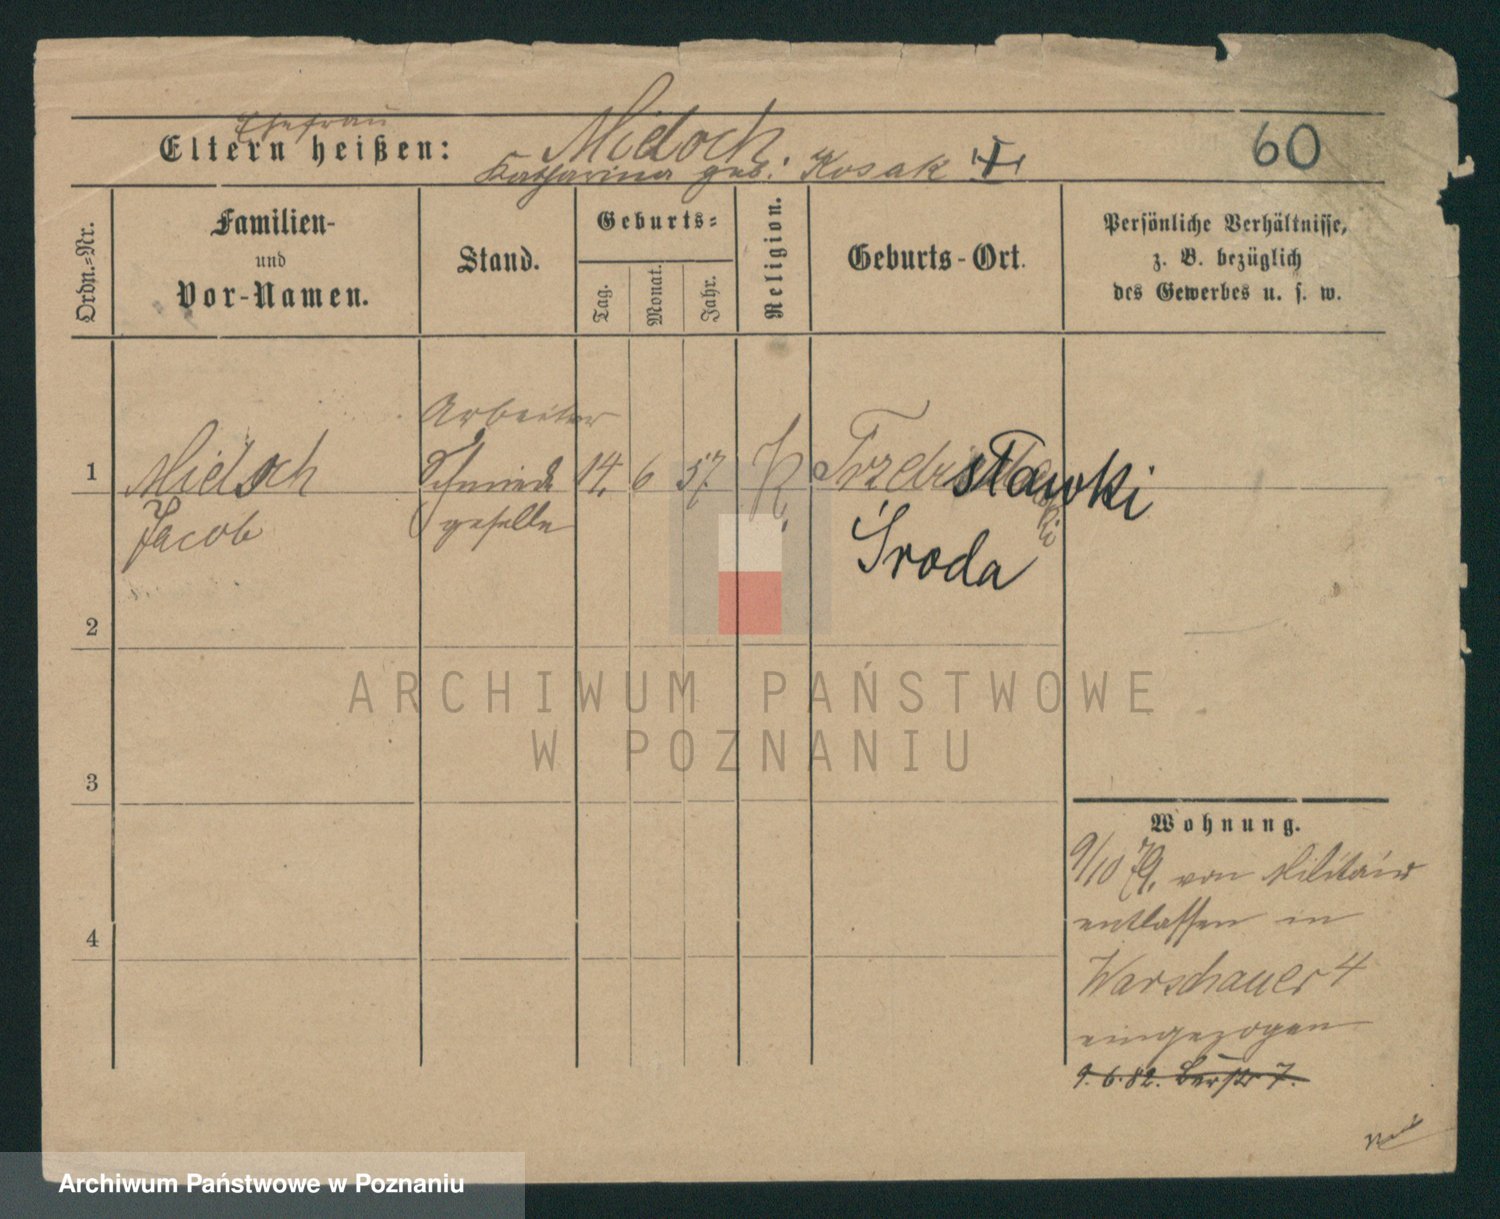 Ehefrau
Eltern heißen: Mieloch 60
Katharina geb. Kosak
Ordn.=Nr.
Familien-
und
Vor-Namen.
Stand.
Geburts=
Tag.
Monat.
Jahr.
Religion.
Geburts-Ort.
Persönliche Verhältnisse,
z. B. bezüglich
des Gewerbes u. s. w.
Arbeiter
1 Mieloch Schmiede 14. 6 57. K. sławki
Jacob geselle Środa
2
ARCHIWUM PAŃSTWOWE
W POZNANIU
3
Wohnung.
9/10 79. von Militair
4 entlassen in
Warschauer 4
eingezogen
9.6.82.
Archiwum Państwowe w Poznaniu